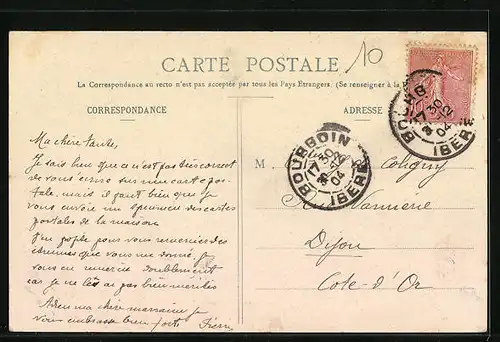 CARTE POSTALE
10
La Correspondance au recto n'est pas acceptée par tous les Pays Etrangers. (Se renseigner à la
CORRESPONDANCE
ADRESSE
Ma chère tante,
Je sais bien que ce n'est pas très correct
de vous écrire sur une carte pos-
tale. mais il faut bien que je
vous envoie un spécimen des cartes
postales de la maison.
J'en profite pour vous remercier des
étrennes que vous me donné. Je
vous en remercie doublement
car je ne les ai pas bien méritées
Adieu ma chère marraine je
vous embrasse bien fort. Pierre
M Coligny
Vannerie
Dijon
Cote-d'Or
BOURBOIN
17 30
04
IBERE
17 30
04
IBERE